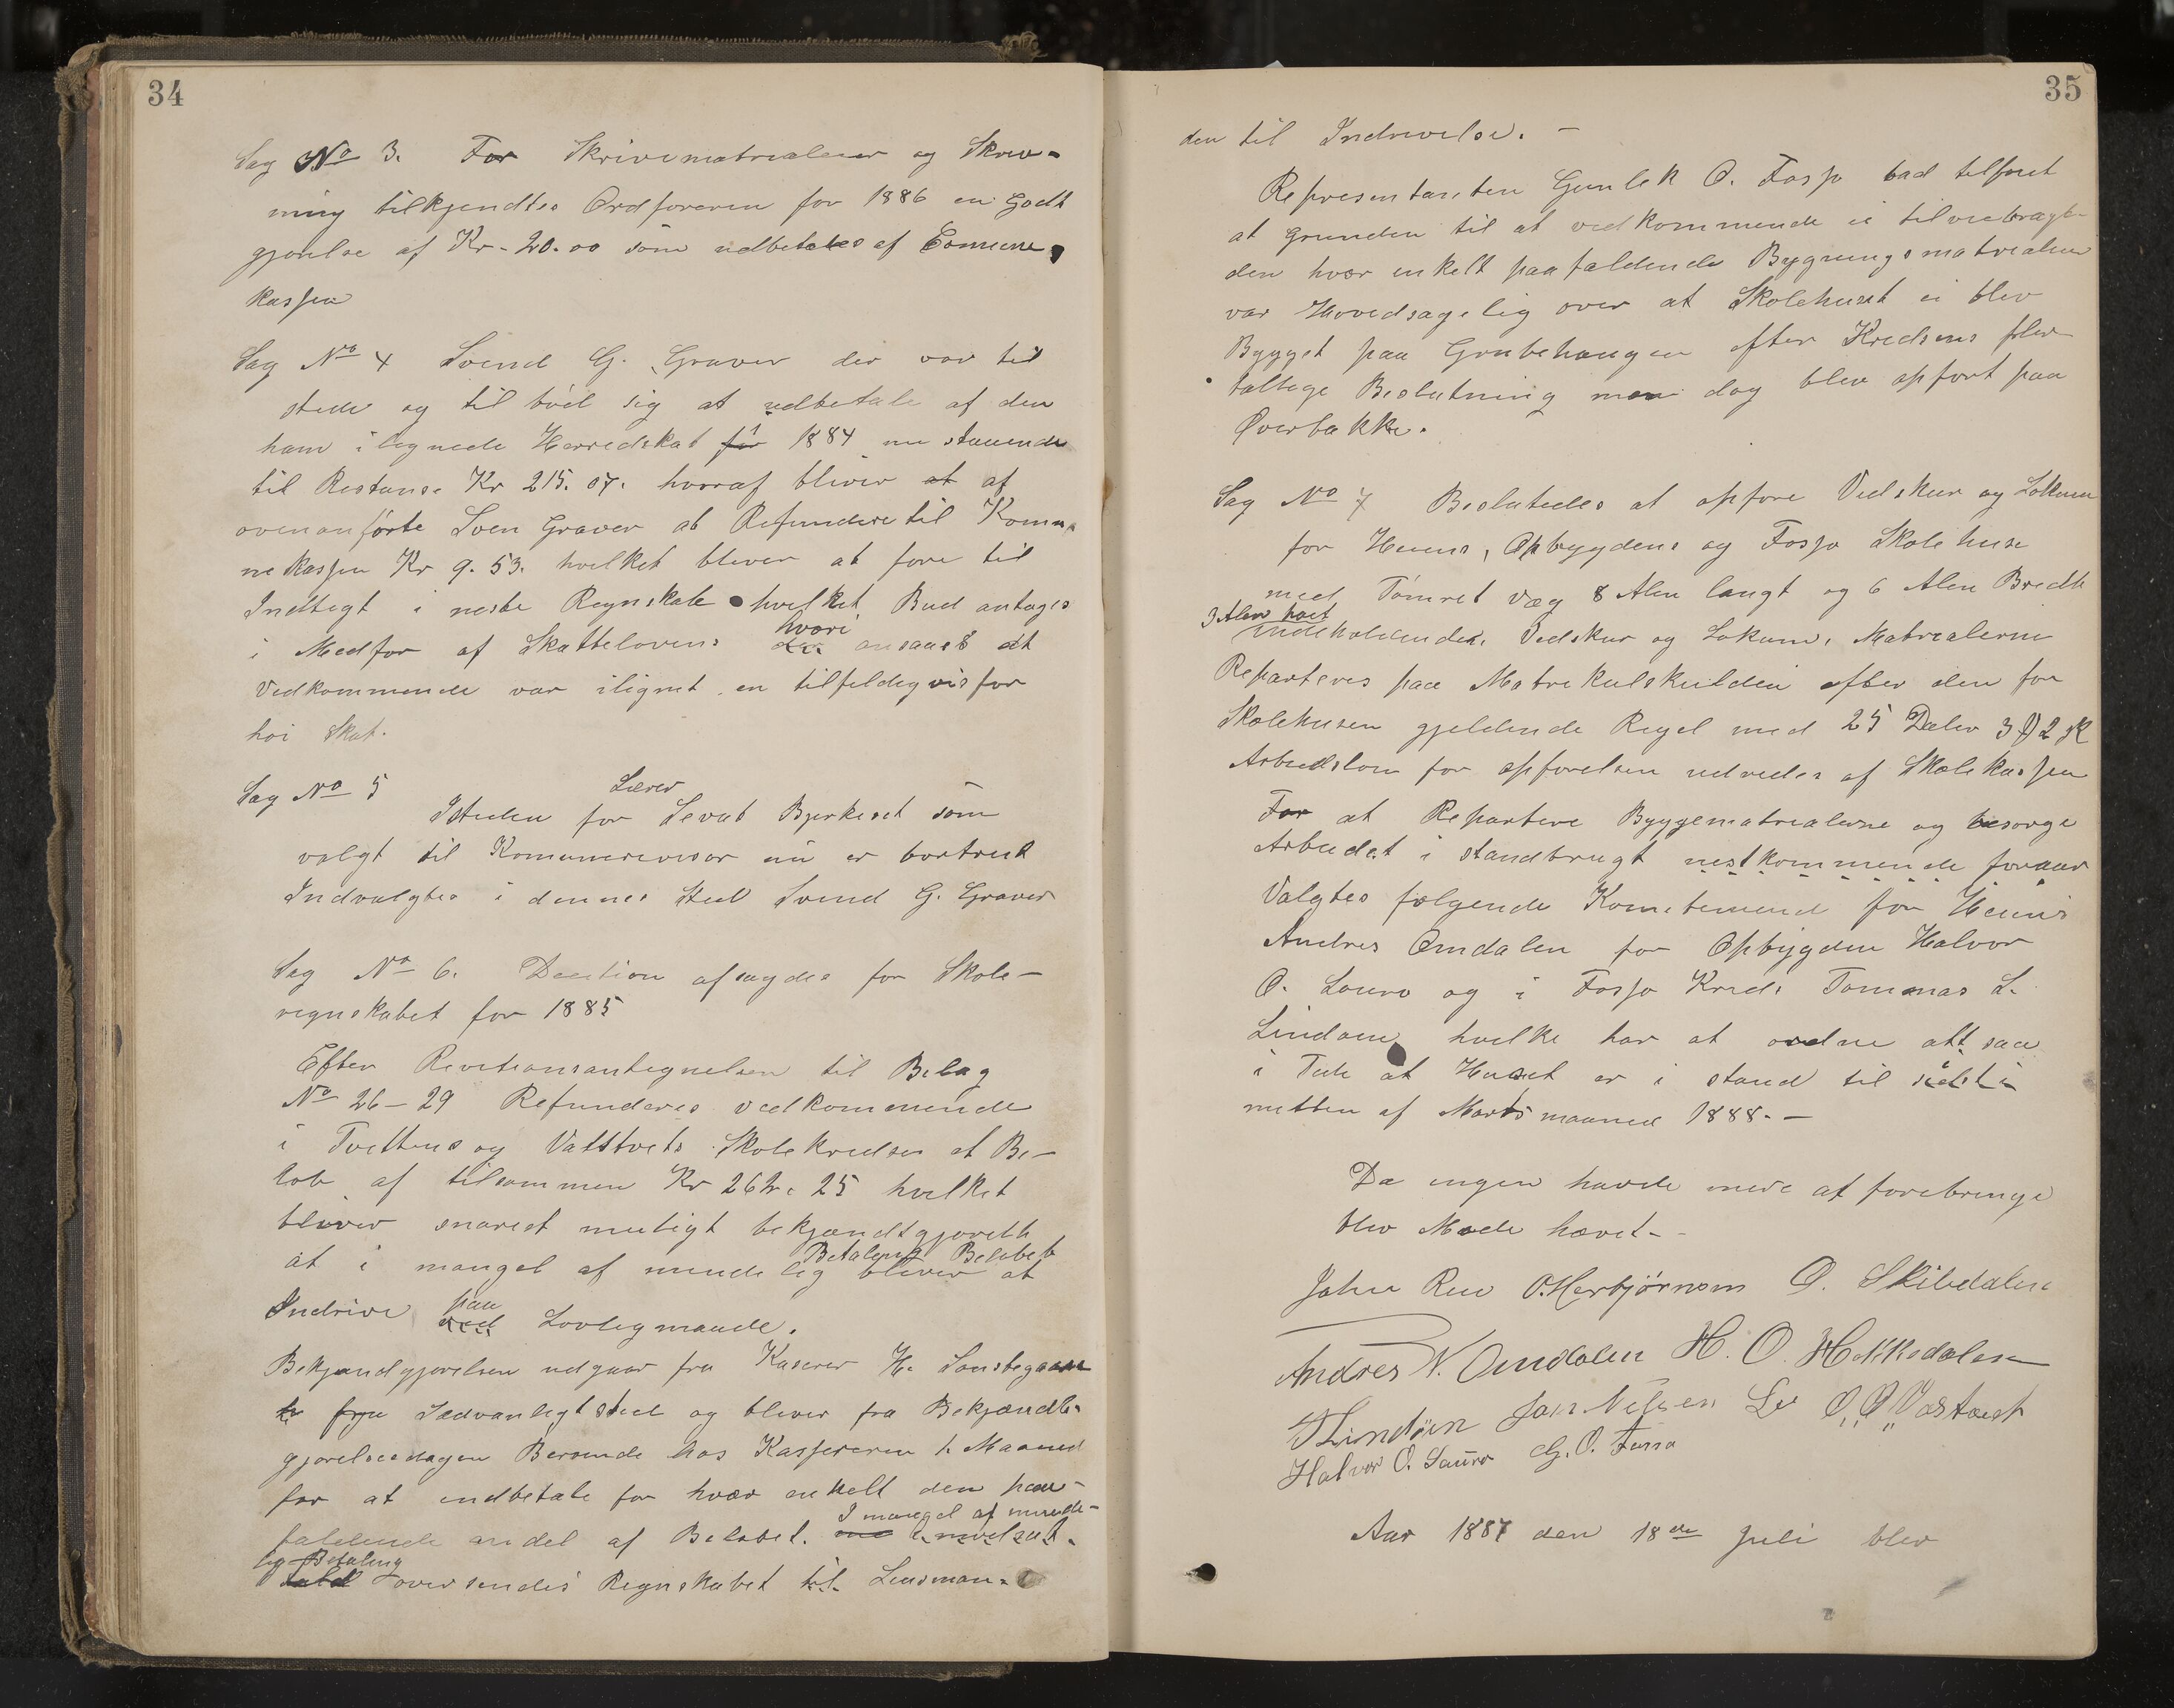 34
Sag No 3. For Skrivematrealier og Skriv-
ning tilkjendtes Ordføreren for 1886 en Godt
gjørelse af Kr-20.00 som udbetales af Comune,
kassen
Sag No 4 Svend G. Graver der var til
stede og til bød sig at udbetale af den
ham ilignede Herredskat i 1884 nu staaende
til Restanse Kr 215.07. hvoraf bliver at af
ovenanførte Sven Graver at Refundere til Komu
nekassen Kr 9.53. hvilket bliver at føre til
Indtegt i neste Regnskab hvilket Bud antages
i Medfør af Skattelovens hvori ansaaes at
Vedkommende var ilignet en tilfeldigvis for
høi Skat.
Sag No 5
Isteden for Lærer Sevat Bjerkeset som
valgt til Komunerevisor nu er bortreist
Indvalgtes i dennes Sted Svend G. Graver
Sag No 6. Decition afsagdes for Skole-
regnskabet for 1885
Efter Revitionsantegnelsen til Belag
No 26-29 Refunderes vedkommende
i Tveitens og Vatstveits Skolekredser et Be-
løb af tilsammen Kr 262.25 hvilket
bliver snarest muligt bekjændtgjoreth
at i mangel af mindelig Betaling bliver Beløbet at
Indrive paa Lovlig maade.
Bekjendgjørelsen udgaar fra Kaserer H. Sanstegaare
Sædvanligt Sted og bliver fra Bekjændt-
gjørelsesdagen Beroende hos Kassereren 1 Maaned
for at indbetale for hver enkelt den paa-
faldende andel af Beløbet. I mangel af minde-
lig Betaling oversendes Regnskabet til Lensman-
35
den til Indrivelse. -
Representanten Gunlek O. Fosso bad tilført
at grunden til at vedkommende ei tilveiebragte
den hver enkelt paafaldende Bygningsmatrealier
var Hovedsagelig over at Skolehuset ei blev
Bygget paa Grubehaugen efter Kredsens fler
tallige Beslutning men dog blev opført paa
Øverbakke.
Sag No 7 Besluttedes at opføre Vedskur og Lokum
for Heiens, Opbygdens og Fosso Skolehuse
med Tømret væg 8 Alen langt og 6 Alen Bredt
3 Alen høit
indeholdendes Vedskur og Lokum. Matrealerne
Reparteres paa Matrikulskylden efter den for
Skolehusen gjeldende Regel med 25 Daler 3 2
Arbeidsløn for opførelsen udredes af Skolekassen
For at Repartere Byggematrealerne og besørge
Arbeidet i standbragt nestkommende foraar
Valgtes følgende Kometemend for Heiens
Andres Omdalen for Opbygden Halvor
O. Lauro og i Fosso Kreds Tommas L.
Lindaen hvilke har at ordne alt saa
i Tide at Huset er i stand til sidst i
mitten af Marts maaned 1888. -
Da ingen havde mere at forebringe
blev Møde hævet. -
John Rue O. Herbjørnsen O. Skibdalen
Andres N. Omdalen H. O. Hekksdalen
T Lindåen Jan Nilsen Lie O. O. Vastveit
Halvor O. Lauro G. O. Fosso
Aar 1887 den 18de Juli blev